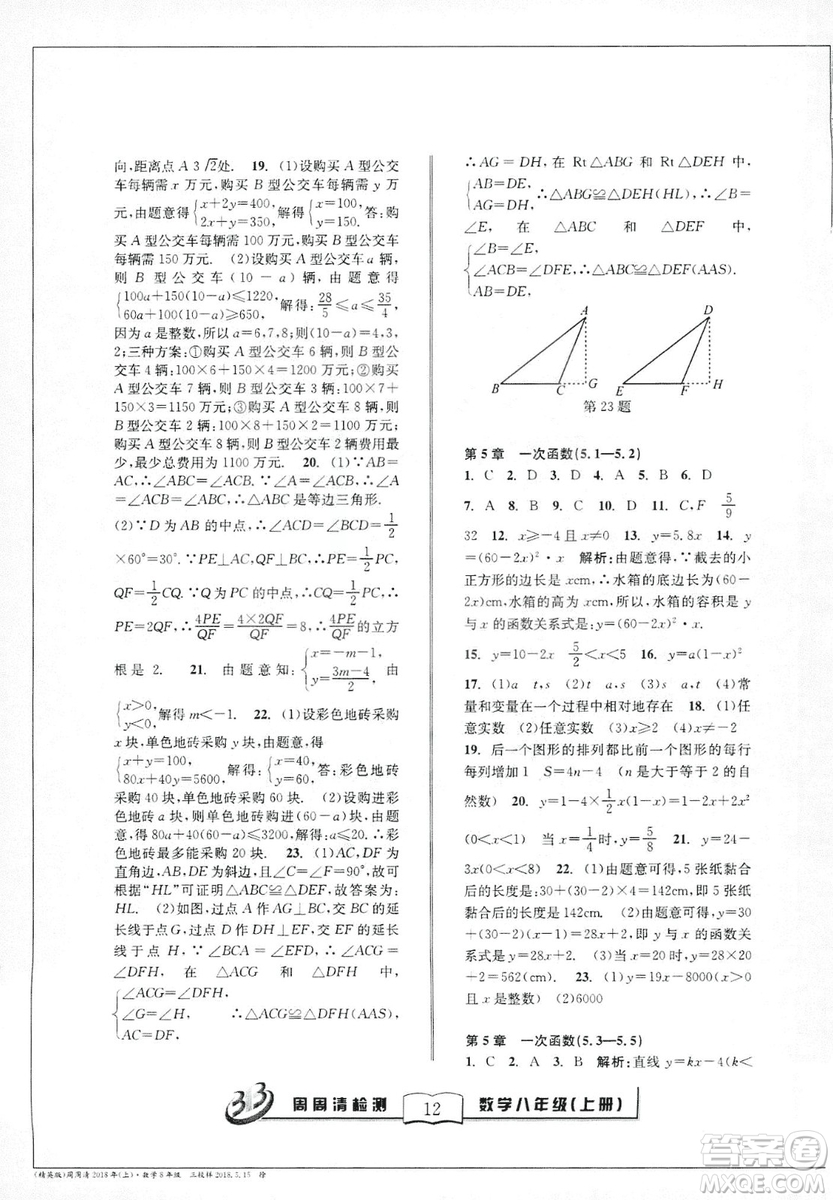 向,距离点 A 3√2处. 19. (1)设购买 A 型公交
车每辆需 x 万元,购买 B 型公交车每辆需 y 万
元,由题意得{x+2y=400, 2x+y=350, 解得{x=100, y=150. 答:购
买 A 型公交车每辆需 100 万元,购买 B 型公交
车每辆需 150 万元. (2)设购买 A 型公交车 a 辆,
则 B 型公交车(10-a)辆,由题意得
{100a+150(10-a)≤1220, 60a+100(10-a)≥650, 解得:28/5≤a≤35/4,
因为 a 是整数,所以 a=6,7,8;则(10-a)=4,3,
2;三种方案:①购买 A 型公交车 6 辆,购买 B 型
公交车 4 辆:100×6+150×4=1200 万元;②购买
A 型公交车 7 辆,购买 B 型公交车 3 辆:100×7+
150×3=1150 万元;③购买 A 型公交车 8 辆,B
型公交车 2 辆:100×8+150×2=1100 万元;购买
A 型公交车 8 辆,B 型公交车 2 辆费用最
少,最少总费用为 1100 万元. 20. (1)∵AB=
AC,∴∠ABC=∠ACB. ∵∠A=∠ABC,∴∠A
=∠ABC=∠ACB,∴△ABC 是等边三角形.
(2)∵D 为AB 的中点,∴∠ACD=∠BCD=1/2
×60°=30°. ∵PE⊥AC,QF⊥BC,∴PE=1/2CP,
QF=1/2CQ. ∵Q 为PC 的中点,∴CP=2CQ,∴
PE=2QF,∴4PE/QF=4×2QF/QF=8,∴4PE/QF的立方
根是 2. 21. 由题意知:{x=-m-1, y=(3m-4)/2, 由
{x>0, y<0, 解得 m<-1. 22. (1)设彩色地砖采购
x 块,单色地砖采购 y 块,由题意,得
{x+y=100, 80x+40y=5600, 解得:{x=40, y=60, 答:彩色地砖
采购 40 块,单色地砖采购 60 块. (2)设购进彩
色地砖 a 块,则单色地砖购进(60-a)块,由题
意,得 80a+40(60-a)≤3200,解得:a≤20.∴彩
色地砖最多能采购 20 块. 23. (1)AC,DF 为
直角边,AB,DE 为斜边,且∠C=∠F=90°,故可
根据“HL”可证明△ABC≌△DEF,故答案为:
HL. (2)如图,过点 A 作 AG⊥BC,交 BC 的延
长线于点G,过点 D 作 DH⊥EF,交 EF 的延长
线于点 H,∵∠BCA=∠EFD,∴∠ACG=
∠DFH,在△ACG 和△DFH 中,
{∠ACG=∠DFH, ∠G=∠H, AC=DF, ∴△ACG≌△DFH(AAS),
∴AG=DH,在 Rt△ABG 和 Rt△DEH 中,
{AB=DE, AG=DH, ∴△ABG≌△DEH(HL),∴∠B=
∠E,在△ABC 和△DEF 中,
{∠B=∠E, ∠ACB=∠DFE, AB=DE, ∴△ABC≌△DEF(AAS).
A D
B C G E F H
第 23 题
第 5 章 一次函数(5.1—5.2)
1. C 2. D 3. D 4. A 5. B 6. D
7. A 8. B 9. D 10. D 11. C,F 5/9
32 12. x≥-4且 x≠0 13. y=5.8x 14. y
=(60-2x)²·x 解析:由题意,得∵截去的小
正方形的边长是 xcm,∴水箱的底边长为(60-
2x)cm,水箱的高为 xcm,所以,水箱的容积是 y
与 x 的函数关系式是:y=(60-2x)²·x.
15. y=10-2x 5/2<x<5 16. y=a(1-x)²
17. (1)a t,s (2)t a,s (3)s a,t (4)常
量和变量在一个过程中相对存在的 18. (1)任
意实数 (2)任意实数 (3)x≥2 (4)x≠-2
19. 后一个图形的排列都比前一个图形的每行
每列增加 1 S=4n-4 (n 是大于或等于 2 的自
然数) 20. y=1-4×1/2x(1-x)=1-2x+2x²
(0<x<1) 当 x=1/4时,y=5/8 21. y=24-
3x(0<x<8) 22. (1)由题意可得,5 张纸黏合
后的长度为:30+(30-2)×4=142cm,即 5 张纸
黏合后的长度是 142cm. (2)由题意可得,y=30
+(30-2)(x-1)=28x+2,即 y 与 x 的函数关
系式是 y=28x+2. (3)当 x=20 时,y=28×20
+2=562(cm). 23. (1)y=19x-8000(x≥0,
且 x 是整数) (2)6000
第 5 章 一次函数(5.3—5.5)
1. C 2. A 3. B 解析:直线 y=kx-4(k<
周周清检测 12 数学八年级(上册)
(精英版)周周清2018年(上)·数学8年级 三校样2018.5.15 徐